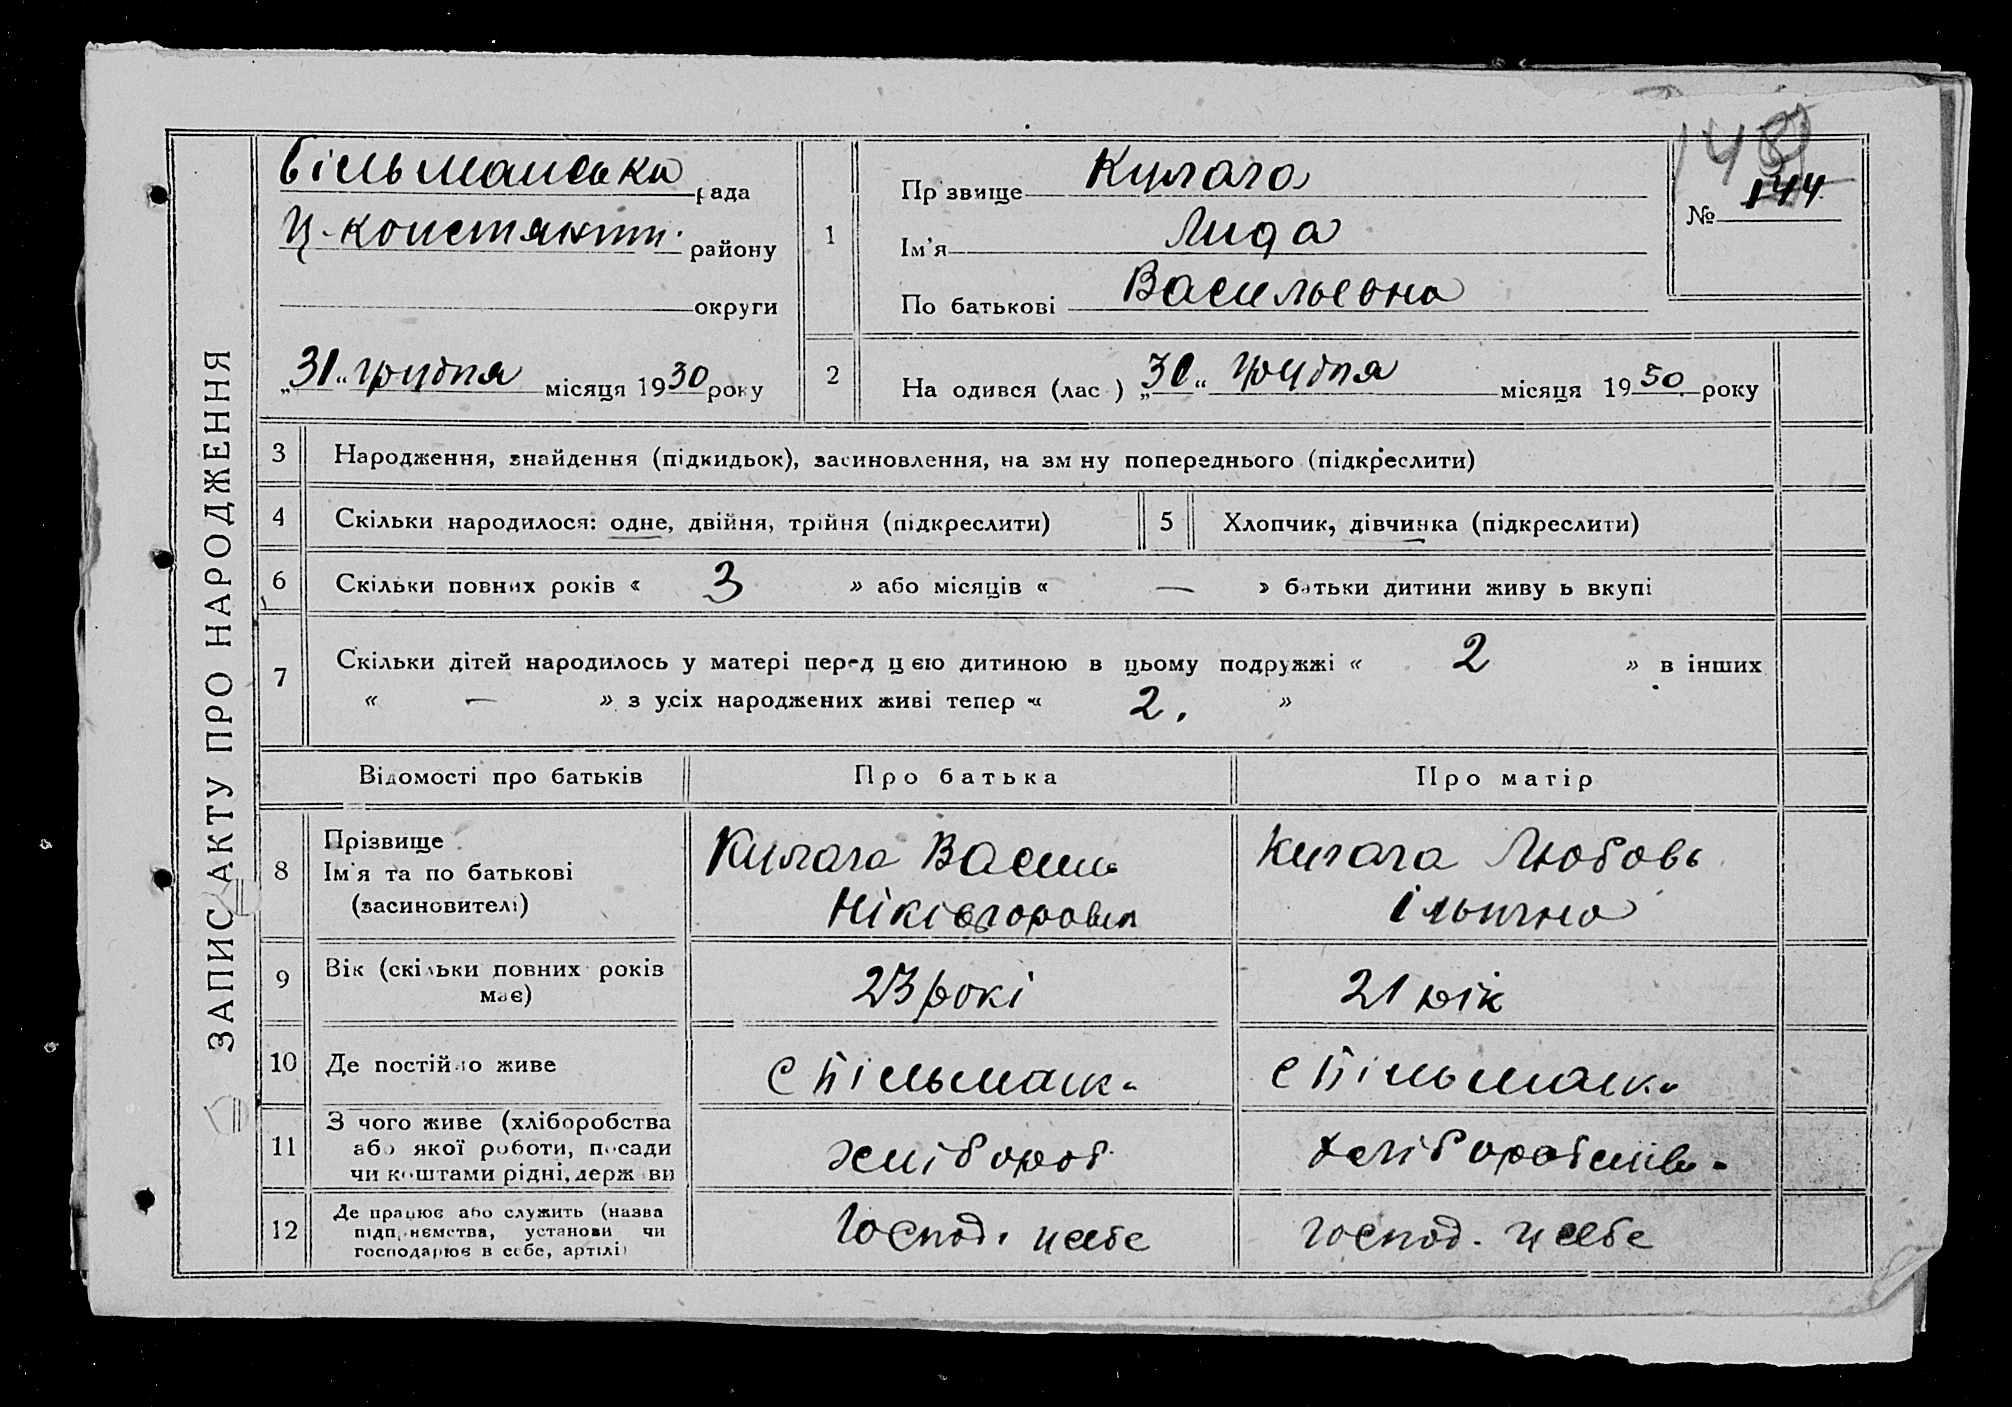 ЗАПИС АКТУ ПРО НАРОДЖЕННЯ
Більманська рада
Ц-констянтин. району
округи
„31“ грудня місяця 1930 року
1
Пр звище Кулага
Ім’я Лида
По батькові Васильевна
148
№ 144
2
На одився (лас ) „30“ грудня місяця 1930 року
3 Народження, знайдення (підкидьок), засиновлення, на зм ну попереднього (підкреслити)
4 Скільки народилося: одне, двійня, трійня (підкреслити)
5 Хлопчик, дівчинка (підкреслити)
6 Скільки повних років « 3 » або місяців « — » батьки дитини живу ь вкупі
7 Скільки дітей народилось у матері перед цією дитиною в цьому подружжі « 2 » в інших
« — » з усіх народжених живі тепер « 2. »
Відомості про батьків Про батька Про матір
8 Прізвище
Ім’я та по батькові
(засиновителі)
Кулага Васил
Нікіфорович
Кулага Любовь
Ільична
9 Вік (скільки повних років
має)
23 рокі
21 рік
10 Де постійно живе
с Більманк.
с Більманк.
11 З чого живе (хліборобства
або якої роботи, посади
чи коштами рідні, держ ви
хлібороб
хліборобств.
12 Де працює або служить (назва
підприємства, установи чи
господарює в себе, артілі)
господ. у себе
господ. у себе